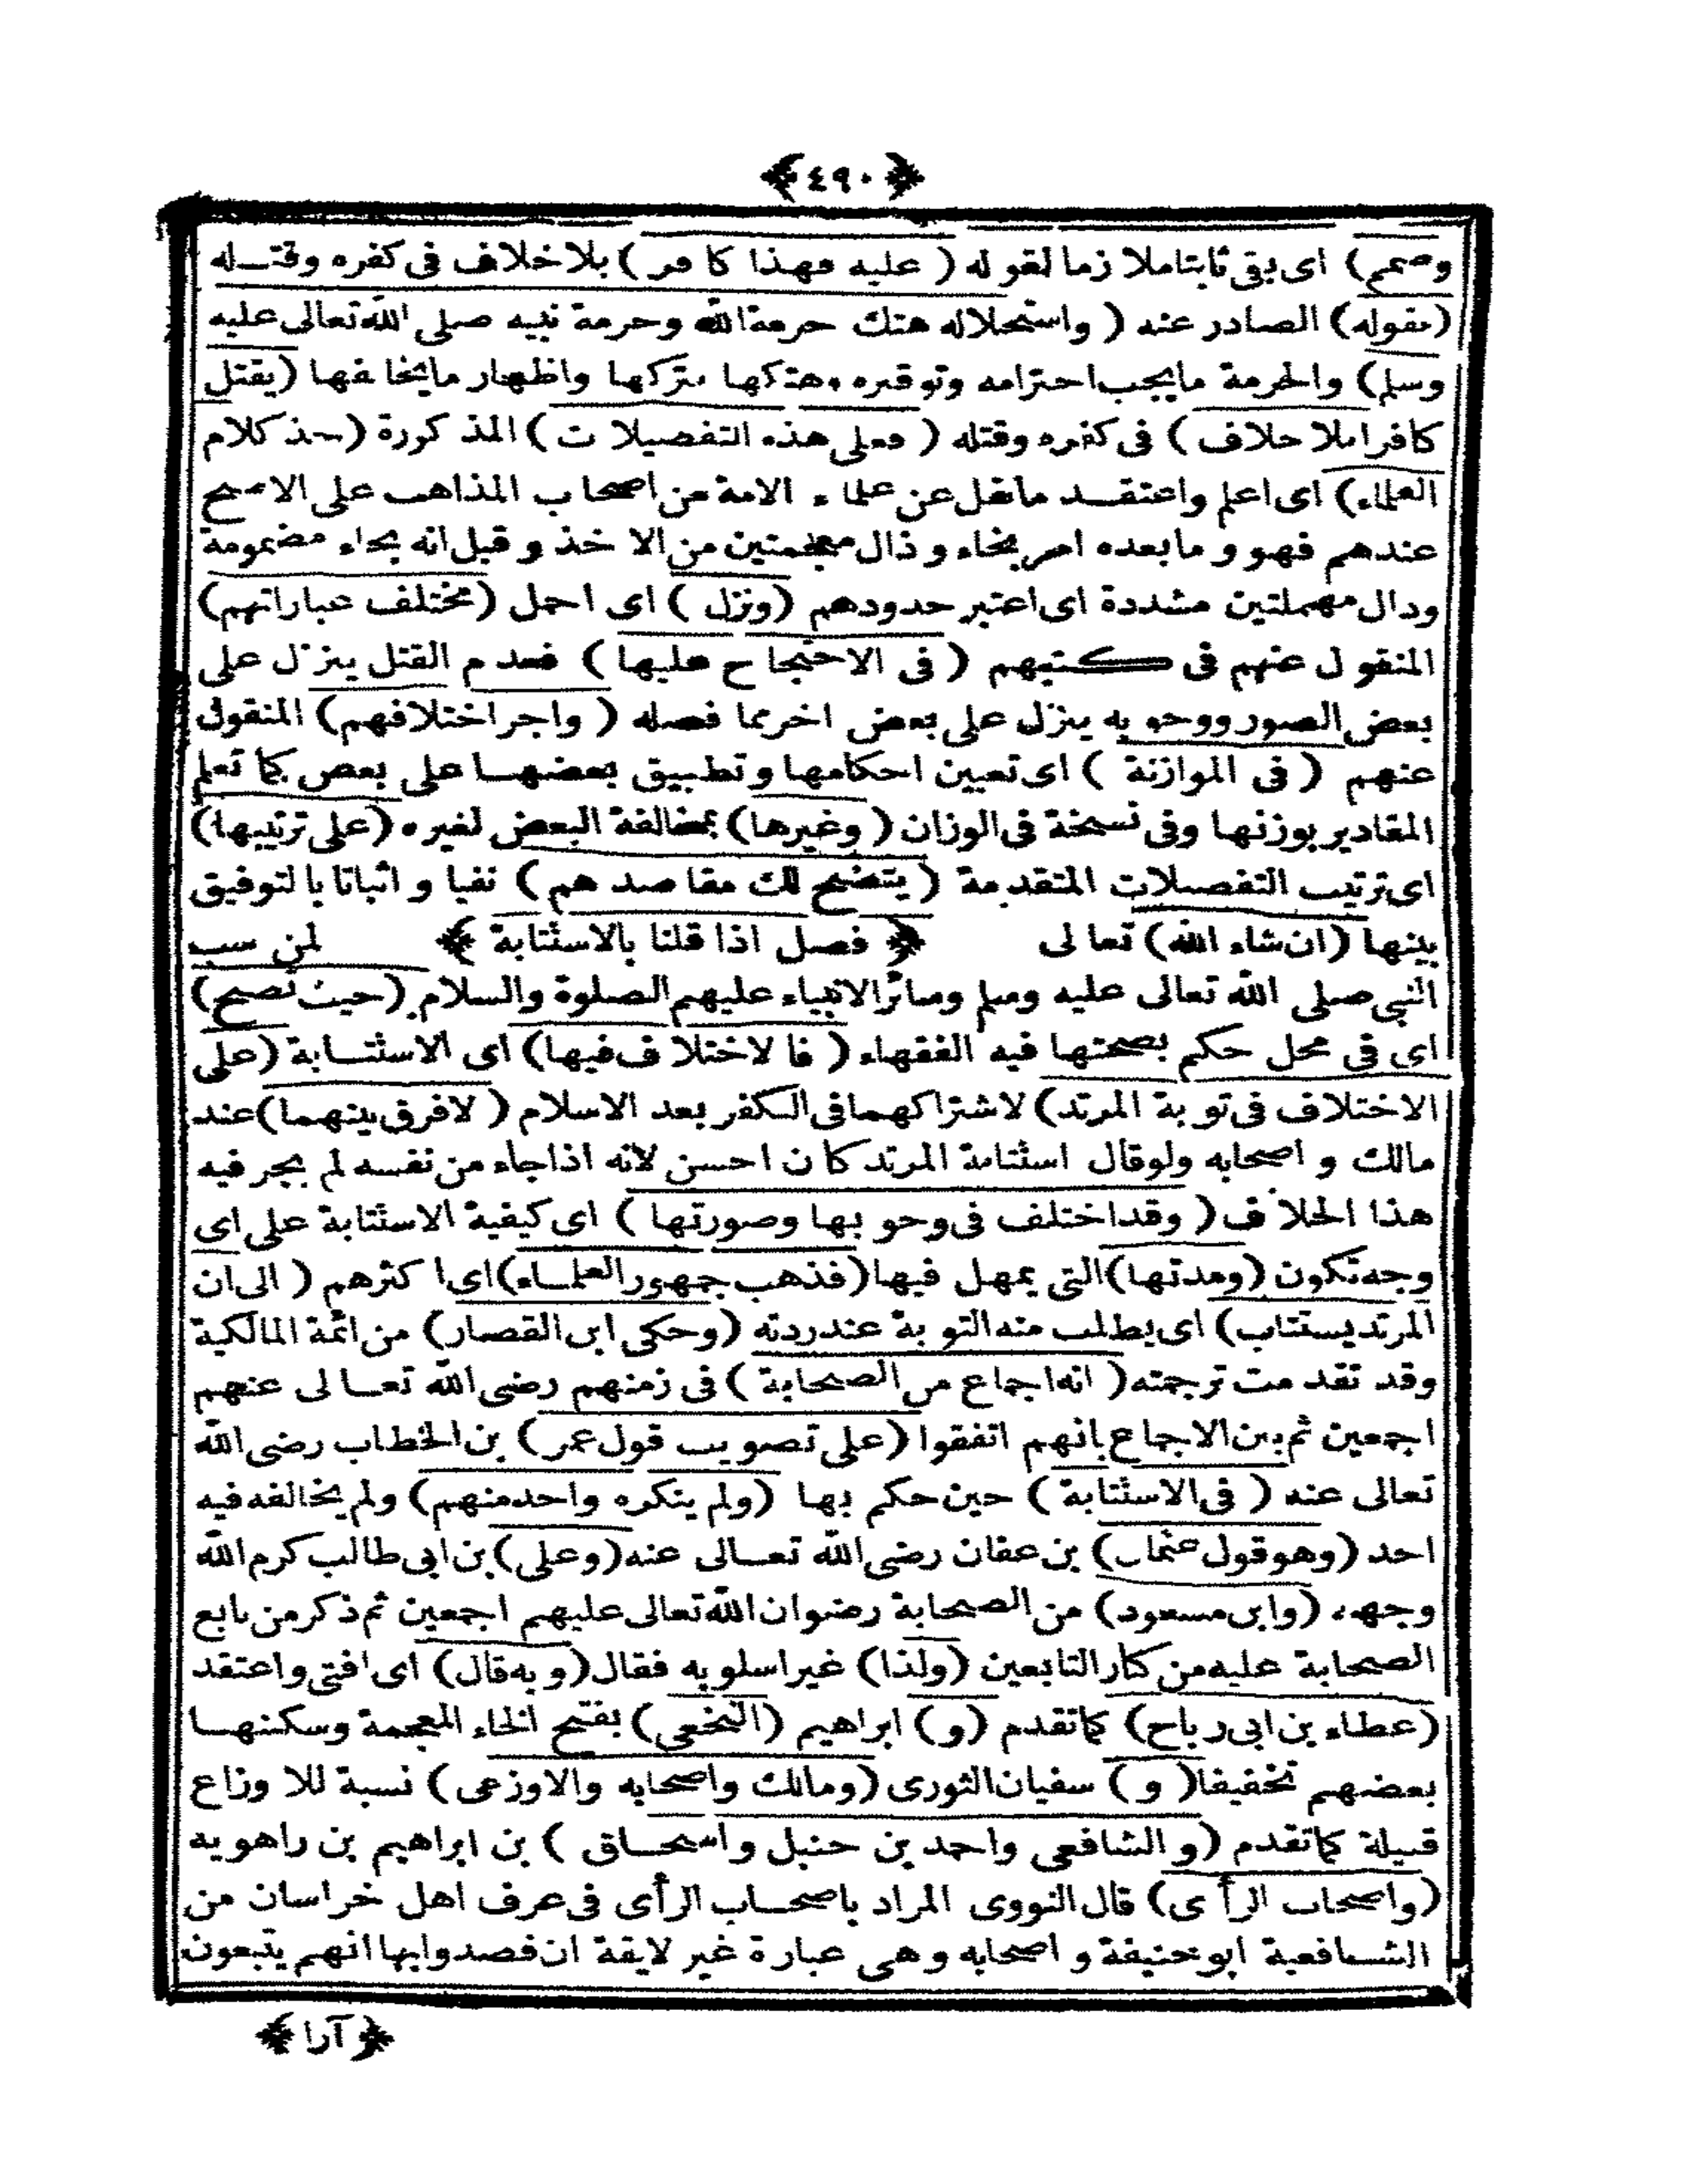 ﴿٤٩٠﴾
وصمم) اى بقى ثابتا ملازما لقوله (عليه فهذا كافر) بلا خلاف فى كفره وقتله
(بقوله) الصادر عنه (واستحلاله هتك حرمة الله وحرمة نبيه صلى الله تعالى عليه
وسلم) والحرمة مايجب احترامه وتوقيره وهتكها بتركها واظهار مايخالفها (يقتل
كافرا بلا خلاف) فى كفره وقتله (فعلى هذه التفصيلات) المذكورة (خذ كلام
العلماء) اى اعلم واعتقد مانقل عن علماء الامة من اصحاب المذاهب على الاصح
عندهم فهو و مابعده امر بخاء و ذال معجمتين من الاخذ و قيل انه بحاء مضمومة
ودال مهملتين مشددة اى اعتبر حدودهم (ونزل) اى احمل (مختلف عباراتهم)
المنقول عنهم فى كتبهم (فى الاحتجاج عليها) فعدم القتل ينزل على
بعض الصور ووجوبه ينزل على بعض اخر مما فصله (واجر اختلافهم) المنقول
عنهم (فى الموازنة) اى تعيين احكامها و تطبيق بعضها على بعض كما تعلم
المقادير بوزنها وفى نسخة فى الوزان (وغيرها) بمخالفة البعض لغيره (على ترتيبها)
اى ترتيب التفصيلات المتقدمة (يتضح لك مقاصدهم) نفيا و اثباتا بالتوفيق
بينها (ان شاء الله) تعالى ﴿فصل اذا قلنا بالاستتابة﴾ لمن سب
النبى صلى الله تعالى عليه وسلم وسائر الانبياء عليهم الصلوة والسلام (حيث تصح)
اى فى محل حكم بصحتها فيه الفقهاء (فالاختلاف فيها) اى الاستتابة (على
الاختلاف فى توبة المرتد) لاشتراكهما فى الكفر بعد الاسلام (لافرق بينهما) عند
مالك و اصحابه ولوقال استتابة المرتد كان احسن لانه اذا جاء من نفسه لم يجر فيه
هذا الخلاف (وقد اختلف فى وجوبها وصورتها) اى كيفية الاستتابة على اى
وجه تكون (ومدتها) التى يمهل فيها (فذهب جمهور العلماء) اى اكثرهم (الى ان
المرتد يستتاب) اى يطلب منه التوبة عند ردته (وحكى ابن القصار) من ائمة المالكية
وقد تقدمت ترجمته (انه اجماع من الصحابة) فى زمنهم رضى الله تعالى عنهم
اجمعين ثم بين الاجماع بانهم اتفقوا (على تصويب قول عمر) بن الخطاب رضى الله
تعالى عنه (فى الاستتابة) حين حكم بها (ولم ينكره واحد منهم) ولم يخالفه فيه
احد (وهو قول عثمان) بن عفان رضى الله تعالى عنه (وعلى) بن ابى طالب كرم الله
وجهه (وابن مسعود) من الصحابة رضوان الله تعالى عليهم اجمعين ثم ذكر من تابع
الصحابة عليه من كبار التابعين (ولذا) غير اسلوبه فقال (وبه قال) اى افتى واعتقد
(عطاء بن ابى رباح) كما تقدم (و) ابراهيم (النخعى) بفتح الخاء المعجمة وسكنها
بعضهم تخفيفا (و) سفيان الثورى (ومالك واصحابه والاوزعى) نسبة للاوزاع
قبيلة كما تقدم (والشافعى واحمد بن حنبل واسحاق) بن ابراهيم بن راهويه
(واصحاب الرأى) قال النووى المراد باصحاب الرأى فى عرف اهل خراسان من
الشافعية ابوحنيفة و اصحابه وهى عبارة غير لايقة ان قصدوا بها انهم يتبعون
﴿آرا﴾